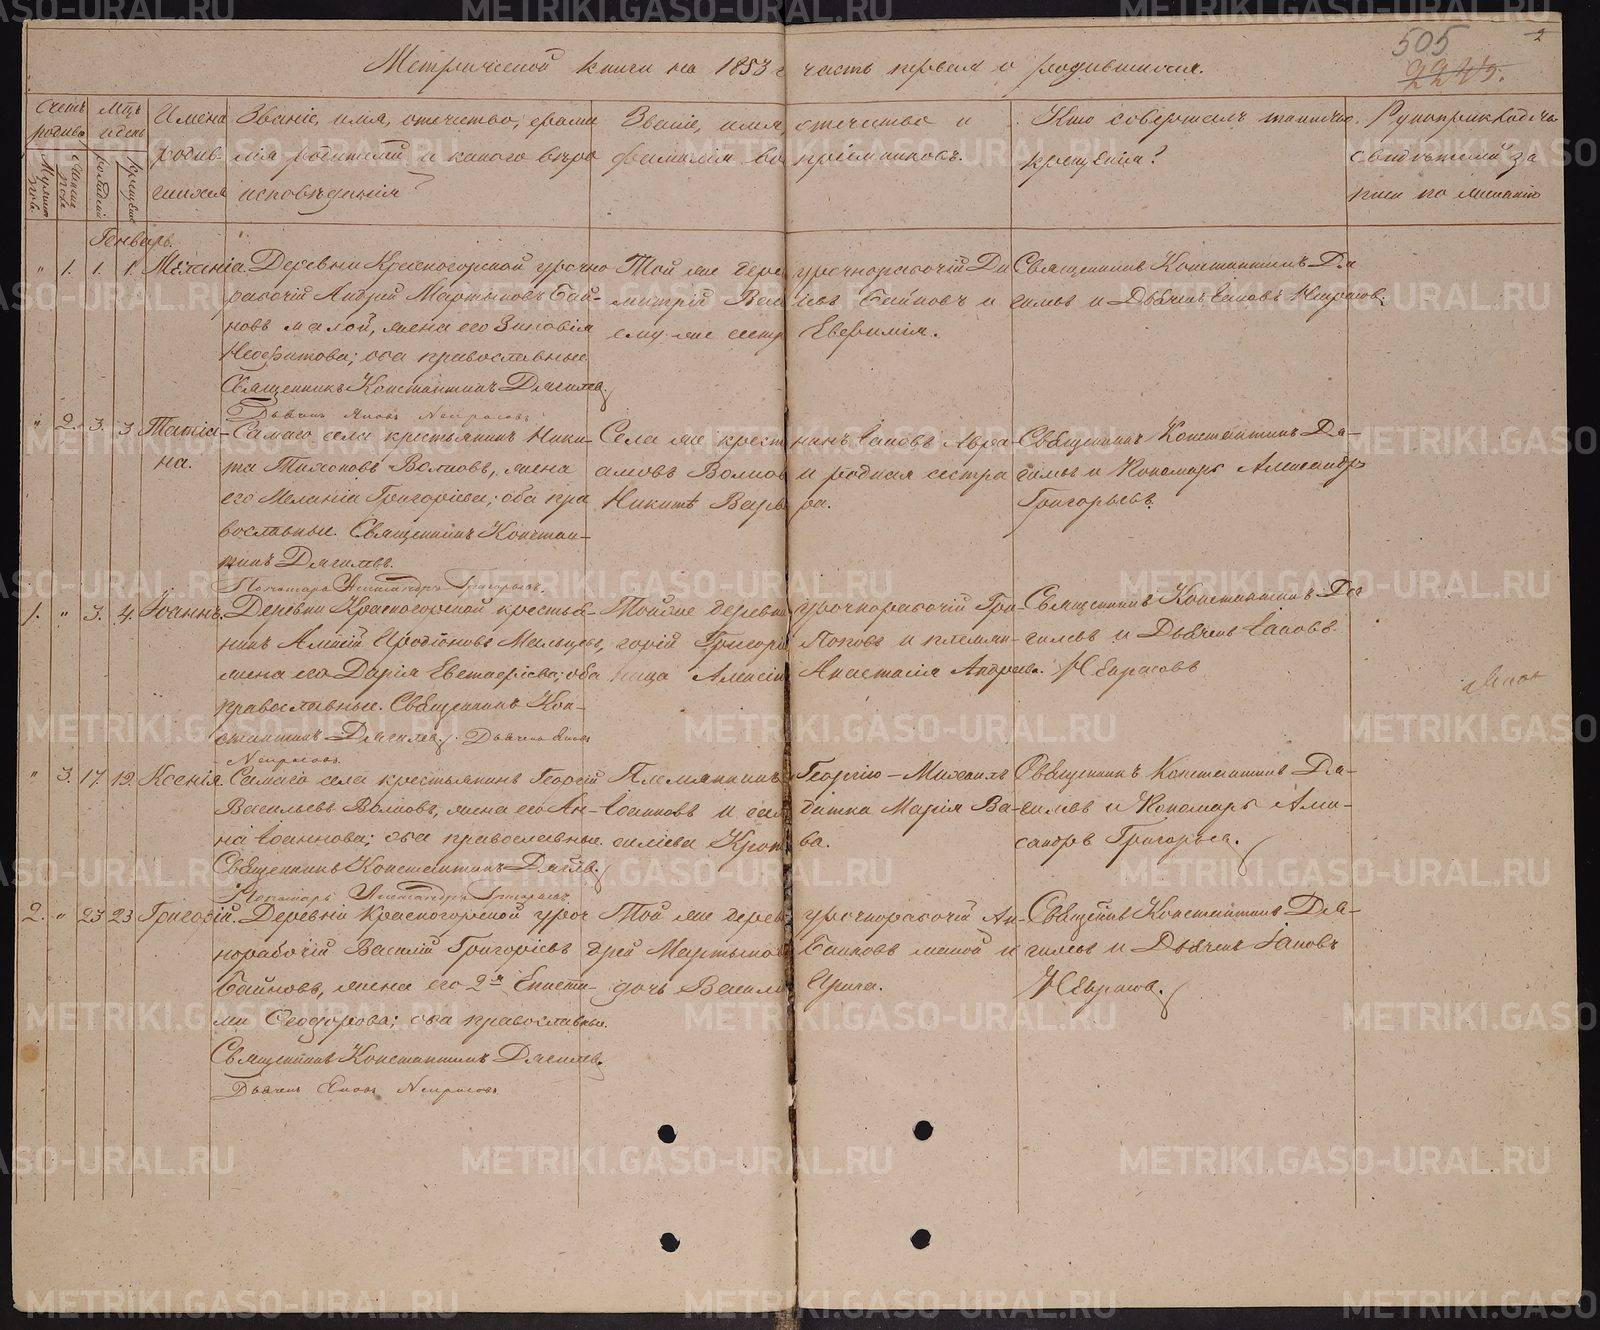 505
2
Метрической книги на 1853 г часть первая о родившихся.
Счетъ родивш.
Мужеска пола.
Женска пола
Мцъ и день
рожденiя
крещенiя
Имена родив-
шихся
Званiе, имя, отечество, фами-
лiя родителей и какого вѣро
исповѣданiя?
Званiе, имя, отечество и
фамилiя воспрiемниковъ.
Кто совершалъ таинство
крещенiя?
Рукоприкладство
свидѣтелей за
писи по желанiю
Генварь.
" 1. 1. 1. Меланiа.
Деревни Красногорской урочно
рабочiй Андрей Мартыновъ Бай-
новъ малой, жена его Зиновiя
Неофитова; оба православные
Священникъ Константинъ Дягилевъ
Дьячекъ Яковъ Некрасовъ
Той же дере урочнорабочiй Ди
митрiй Васи Байновъ и
ему же сестр Евфимiя.
Священникъ Константинъ Дя
гилевъ и Дьячекъ Iаковъ Некрасовъ.
" 2. 3. 3 Татiа-
на.
Самаго села крестьянинъ Ники-
та Тихоновъ Волковъ, жена
его Меланiа Григорiева; оба пра
вославные. Священникъ Констан-
тинъ Дягилевъ.
Пономарь Александръ Григорьевъ.
Села же крест нинъ Iаковъ Авра-
амовъ Волков и родная сестра
Никитѣ Варв ра.
Священникъ Константинъ Дя-
гилевъ и Пономарь Александръ
Григорьевъ.
1. " 3. 4. Iоаннъ.
Деревни Красногорской крестья-
нинъ Алексiй Иродiоновъ Мальцевъ,
жена его Дарiя Евстафiева; оба
православные. Священникъ Кон-
стантинъ Дягилевъ. Дьячекъ Яковъ
Некрасовъ.
Тойже деревни урочнорабочiй Гри-
горiй Григорi Поповъ и племян-
ница Алексi Анастасiя Андреева.
Священникъ Константинъ Дя
гилевъ и Дьячекъ Iаковъ
Некрасовъ
" 3. 17. 19. Ксенiя.
Самаго села крестьянинъ Георгiй
Васильевъ Волковъ, жена его Ан-
на Iоаннова; оба православные.
Священникъ Константинъ Дягилевъ.
Пономарь Александръ Григорьевъ.
Племянникъ Георгiю - Михаилъ
Iоанновъ и сол датка Марiя Ва-
силiева Кроп ва.
Священникъ Константинъ Дя-
гилевъ и Пономарь Алек-
сандръ Григорьевъ.
2. " 23 23 Григорiй.
Деревни Красногорской уроч
норабочiй Василiй Григорiевъ
Байновъ, жена его 2я Еписти-
ми Ѳеодорова; оба православные.
Священникъ Константинъ Дягилевъ.
Дьячекъ Яковъ Некрасовъ
Той же дерев урочнорабочiй Ан-
дрей Мартынов Байновъ малой и
дочь Васил Ирина.
Священникъ Константинъ Дя-
гилевъ и Дьячекъ Iаковъ
Некрасовъ.
METRIKI.GASO-URAL.RU